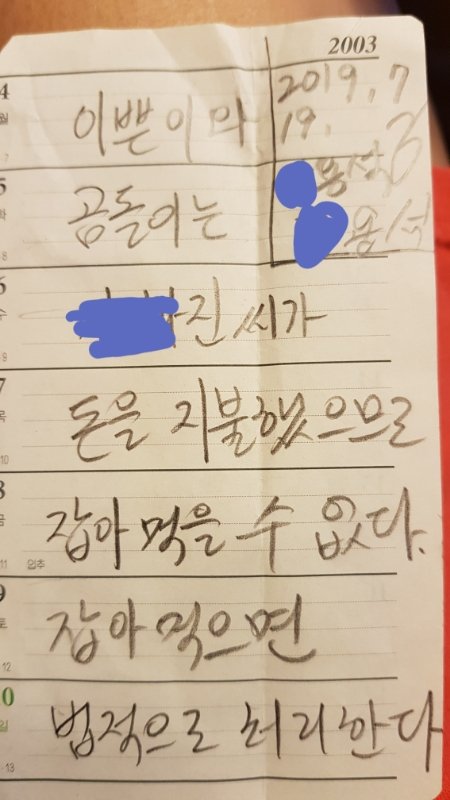 2003
4
월
7
이쁜이와
2019. 7
19.
5
화
8
곰돌이는
용석
용석
6
수
9
진 씨가
7
목
10
돈을 지불했으므로
8
금
11 입추
잡아 먹을 수 없다.
9
토
12
잡아 먹으면
0
일
13
법적으로 처리한다